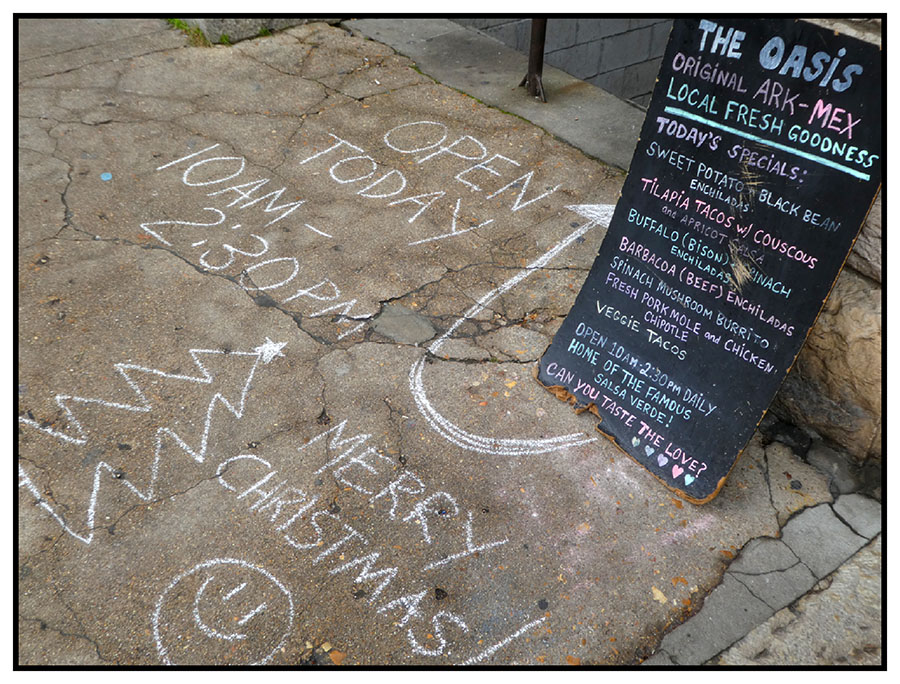 THE OASIS
ORIGINAL ARK-MEX
LOCAL FRESH GOODNESS
TODAY'S SPECIALS:
SWEET POTATO BLACK BEAN
ENCHILADAS
TILAPIA TACOS w/ COUSCOUS
and APRICOT SALSA
BUFFALO (BISON) SPINACH
ENCHILADAS
BARBACOA (BEEF) ENCHILADAS
SPINACH MUSHROOM BURRITO
FRESH PORK MOLE and CHICKEN
CHIPOTLE
VEGGIE TACOS
OPEN 10AM-2:30PM DAILY
HOME OF THE FAMOUS
SALSA VERDE!
CAN YOU TASTE THE LOVE?
OPEN
TODAY
10AM -
2:30PM
MERRY
CHRISTMAS